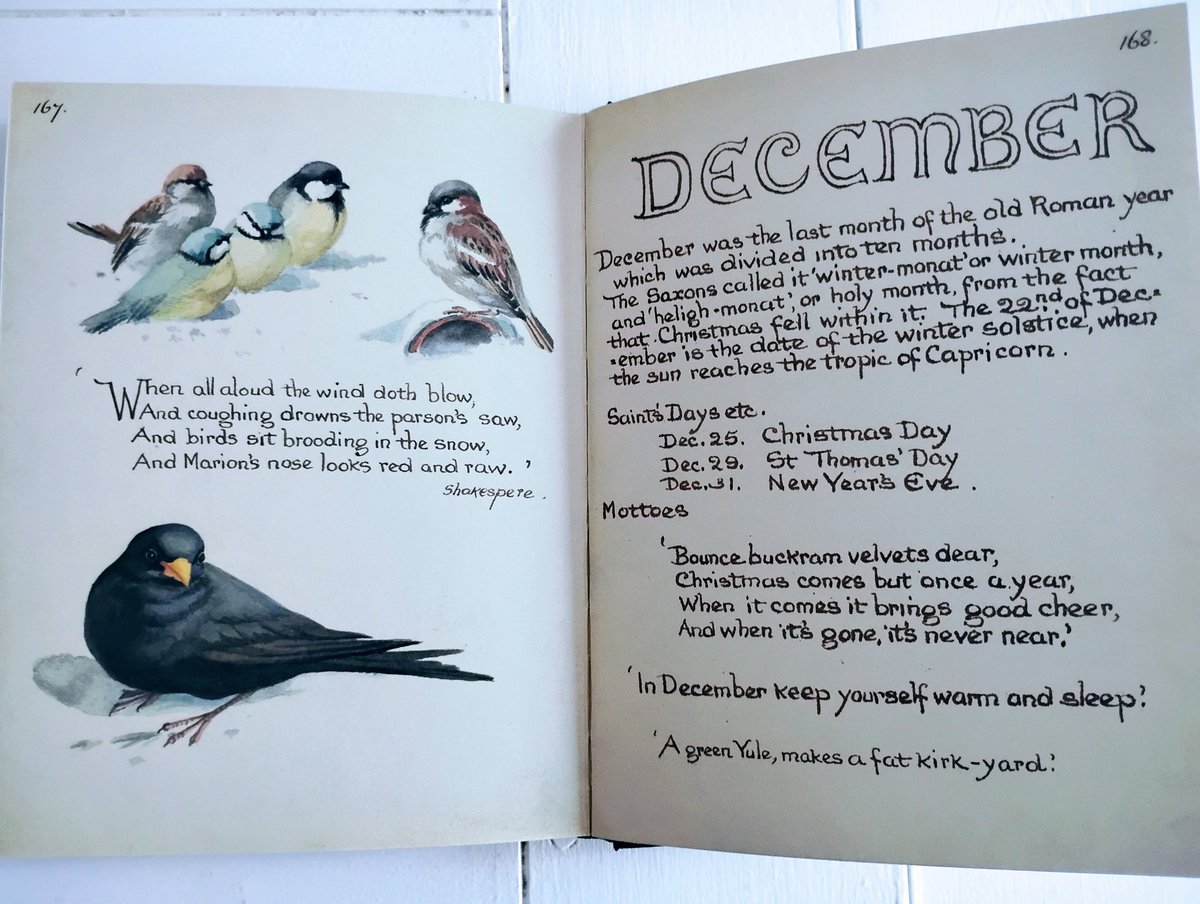 167.
'When all aloud the wind doth blow,
And coughing drowns the parson's saw,
And birds sit brooding in the snow,
And Marion's nose looks red and raw.'
Shakespere.
168.
DECEMBER
December was the last month of the old Roman year
which was divided into ten months.
The Saxons called it 'winter-monat' or winter month,
and 'heligh-monat', or holy month, from the fact
that Christmas fell within it. The 22nd of Dec-
-ember is the date of the winter solstice, when
the sun reaches the tropic of Capricorn.
Saint's Days etc.
Dec. 25. Christmas Day
Dec. 29. St Thomas' Day
Dec. 31. New Year's Eve.
Mottoes
'Bounce buckram velvets dear,
Christmas comes but once a year,
When it comes it brings good cheer,
And when it's gone, it's never near.'
'In December keep yourself warm and sleep.'
'A green Yule, makes a fat kirk-yard.'